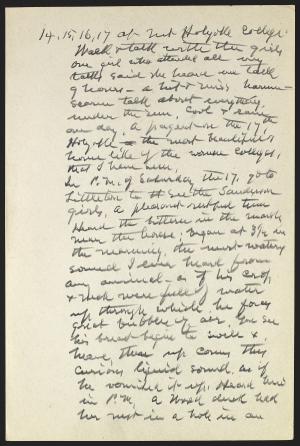 14, 15, 16, 17 at Mt Holyoke College.
Walk & talk with the girls
one girl who attended all my
talks said she heard me talk
9 hours – a hit & miss harum-
scarum talk about everything
under the sun. Cool & rainy
one day. A pageant on the 17.
Holyoke the most beautiful &
home like of the women colleges,
that I have seen.
In P.M. of Saturday the 17. go to
Littleton to see the Sanderson
girls, a pleasant restful time
Heard the bittern in the marsh
near the house; began at 3½ in
the morning, the most watery
sound I ever heard from
any animal – as if his crop
& neck were full of water
up through which he forces
great bubbles of air. You see
his breast begin to swell &
heave, then up comes this
curious liquid sound, as if
he vomited it up. Heard him
in P.M. A Wood duck had
her nest in a hole in an